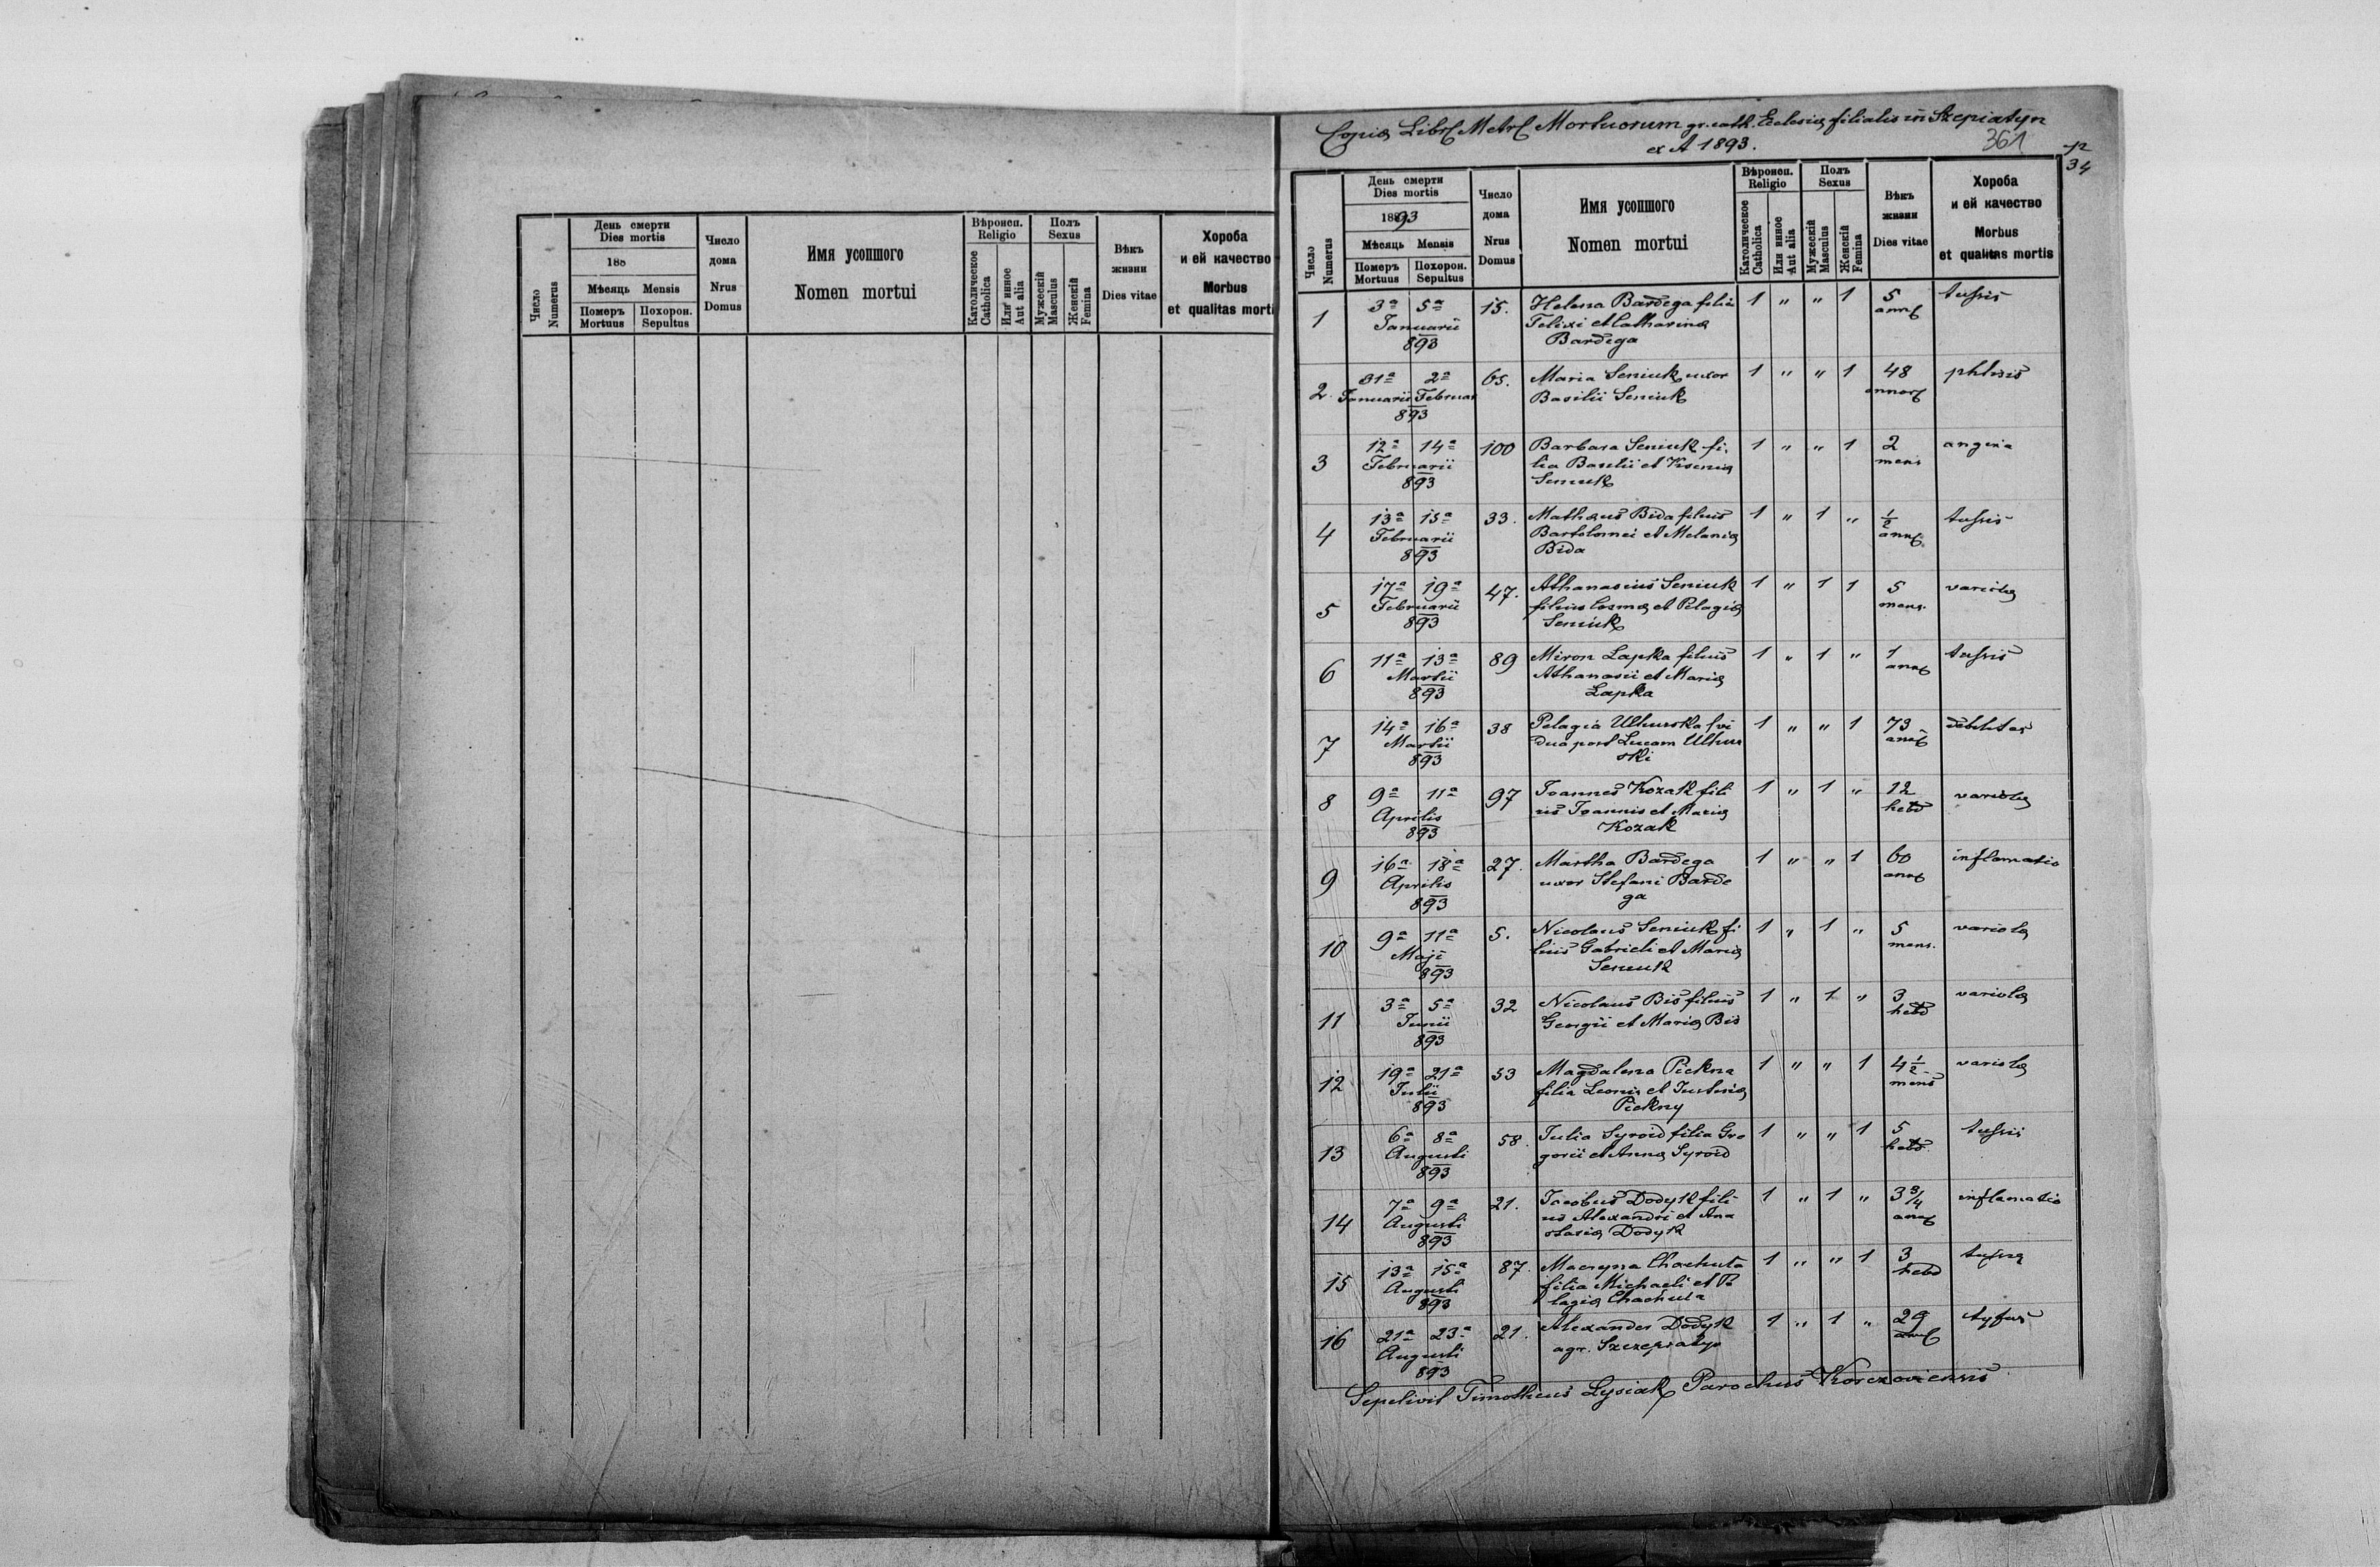 Число Numerus
День смерти
Dies mortis
188
Мѣсяць Mensis
Померъ Mortuus
Похорон. Sepultus
Число дома
Nrus Domus
Имя усопшого
Nomen mortui
Вѣроисп. Religio
Католическое Catholica
Или инное Aut alia
Полъ Sexus
Мужескій Masculus
Женскій Femina
Вѣкъ жизни
Dies vitae
Хороба
и ей качество
Morbus
et qualitas morti
Copia Libr Metr Mortuorum gr. cath. Eclesiæ filialis in Szepiatyn
ex A 1893.
361
34
Число Numerus
День смерти
Dies mortis
1893
Мѣсяць Mensis
Померъ Mortuus
Похорон. Sepultus
Число дома
Nrus Domus
Имя усопшого
Nomen mortui
Вѣроисп. Religio
Католическое Catholica
Или инное Aut alia
Полъ Sexus
Мужескій Masculus
Женскій Femina
Вѣкъ жизни
Dies vitae
Хороба
и ей качество
Morbus
et qualitas mortis
1 3a 5a 15. Helena Bardega filia 1 " " 1 5 tussis
Januarii Felixi et Catharinæ ann
893 Bardega
2. 31a 2a 65. Maria Seniuk uxor 1 " " 1 48 phtisis
Januarii Februar Basilii Seniuk annor
893
3 12a 14a 100 Barbara Seniuk fi- 1 " " 1 2 angina
Februarii lia Basilii et Kseniæ mens
893 Seniuk
4 13a 15a 33. Mathæus Bida filius 1 " 1 " 1/2 tussis
Februarii Bartolomei et Melaniæ ann
893 Bida
5 17a 19a 47. Athanasius Seniuk 1 " 1 1 5 variolæ
Februarii filius Cosmæ et Pelagiæ mens.
893 Seniuk
6 11a 13a 89 Miron Lapka filius 1 " 1 " 1 tussis
Martii Athanasii et Mariæ ann
893 Lapka
7 14a 16a 38 Pelagia Ulhurska vi 1 " " 1 73 debilitas
Martii dua post Lucam Ulhur ann
893 ski
8 9a 11a 97 Joannes Kozak fili 1 " 1 " 12 variolæ
Aprilis us Joannis et Mariæ hebd
893 Kozak
9 16a 18a 27. Martha Bardega 1 " " 1 60 inflamatio
Aprilis uxor Stefani Barde ann
893 ga
10 9a 11a 5. Nicolaus Seniuk fi 1 " 1 " 5 variola
Maji lius Gabrieli et Mariæ mens.
893 Seniuk
11 3a 5a 32 Nicolaus Bis filius 1 " 1 " 3 variola
Junii Georgii et Mariæ Bis hebd
893
12 19a 21a 53 Magdalena Piekna 1 " " 1 4 1/2 variola
Julii filia Leonis et Justinæ mens
893 Piekny
13 6a 8a 58. Julia Syroid filia Gre 1 " " 1 5 tussis
Augusti gorii et Annæ Syroid hebd
893
14 7a 9a 21. Jacobus Dodyk fili 1 " 1 " 3 3/4 inflamatio
Augusti us Alexandri et Ana ann
893 stasiæ Dodyk
15 13a 15a 87. Macryna Chachula 1 " " 1 3
Augusti filia Michaeli et Pe hebd
893 lagiæ Chachula
16 21a 23a 21. Alexander Dodyk 1 " 1 " 29 tyfus
Augusti agr. ann
893
Sepelivit Timotheus Lysiak Parochus Korczoviensis